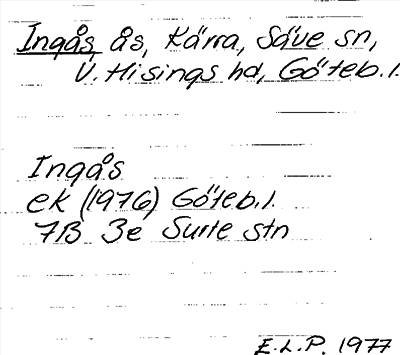 Ingås, ås, Kärra, Säve sn,
V. Hisings hd, Göteb. l.
Ingås
ek (1976) Göteb. l.
7B 3e Surte stn
E.L.P. 1977